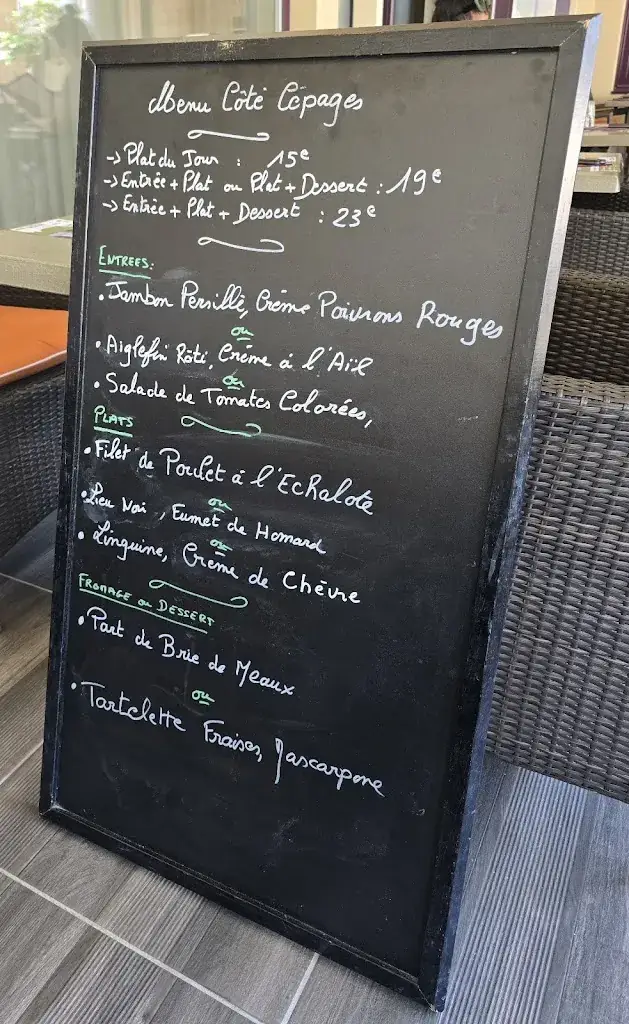 Menu Côté Cépages
-> Plat du Jour : 15€
-> Entrée + Plat ou Plat + Dessert : 19€
-> Entrée + Plat + Dessert : 23€
ENTREES:
• Jambon Persillé, Crème Poivrons Rouges
ou
• Aiglefin Rôti, Crème à l'Ail
ou
• Salade de Tomates Colorées,
PLATS
• Filet de Poulet à l'Echalote
ou
• Lieu Noir, Fumet de Homard
ou
• Linguine, Crème de Chèvre
FROMAGE ou DESSERT
• Part de Brie de Meaux
ou
• Tartelette Fraises, Mascarpone